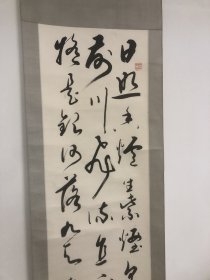 日照香爐生紫煙
前川飛流直
疑是銀河落九天